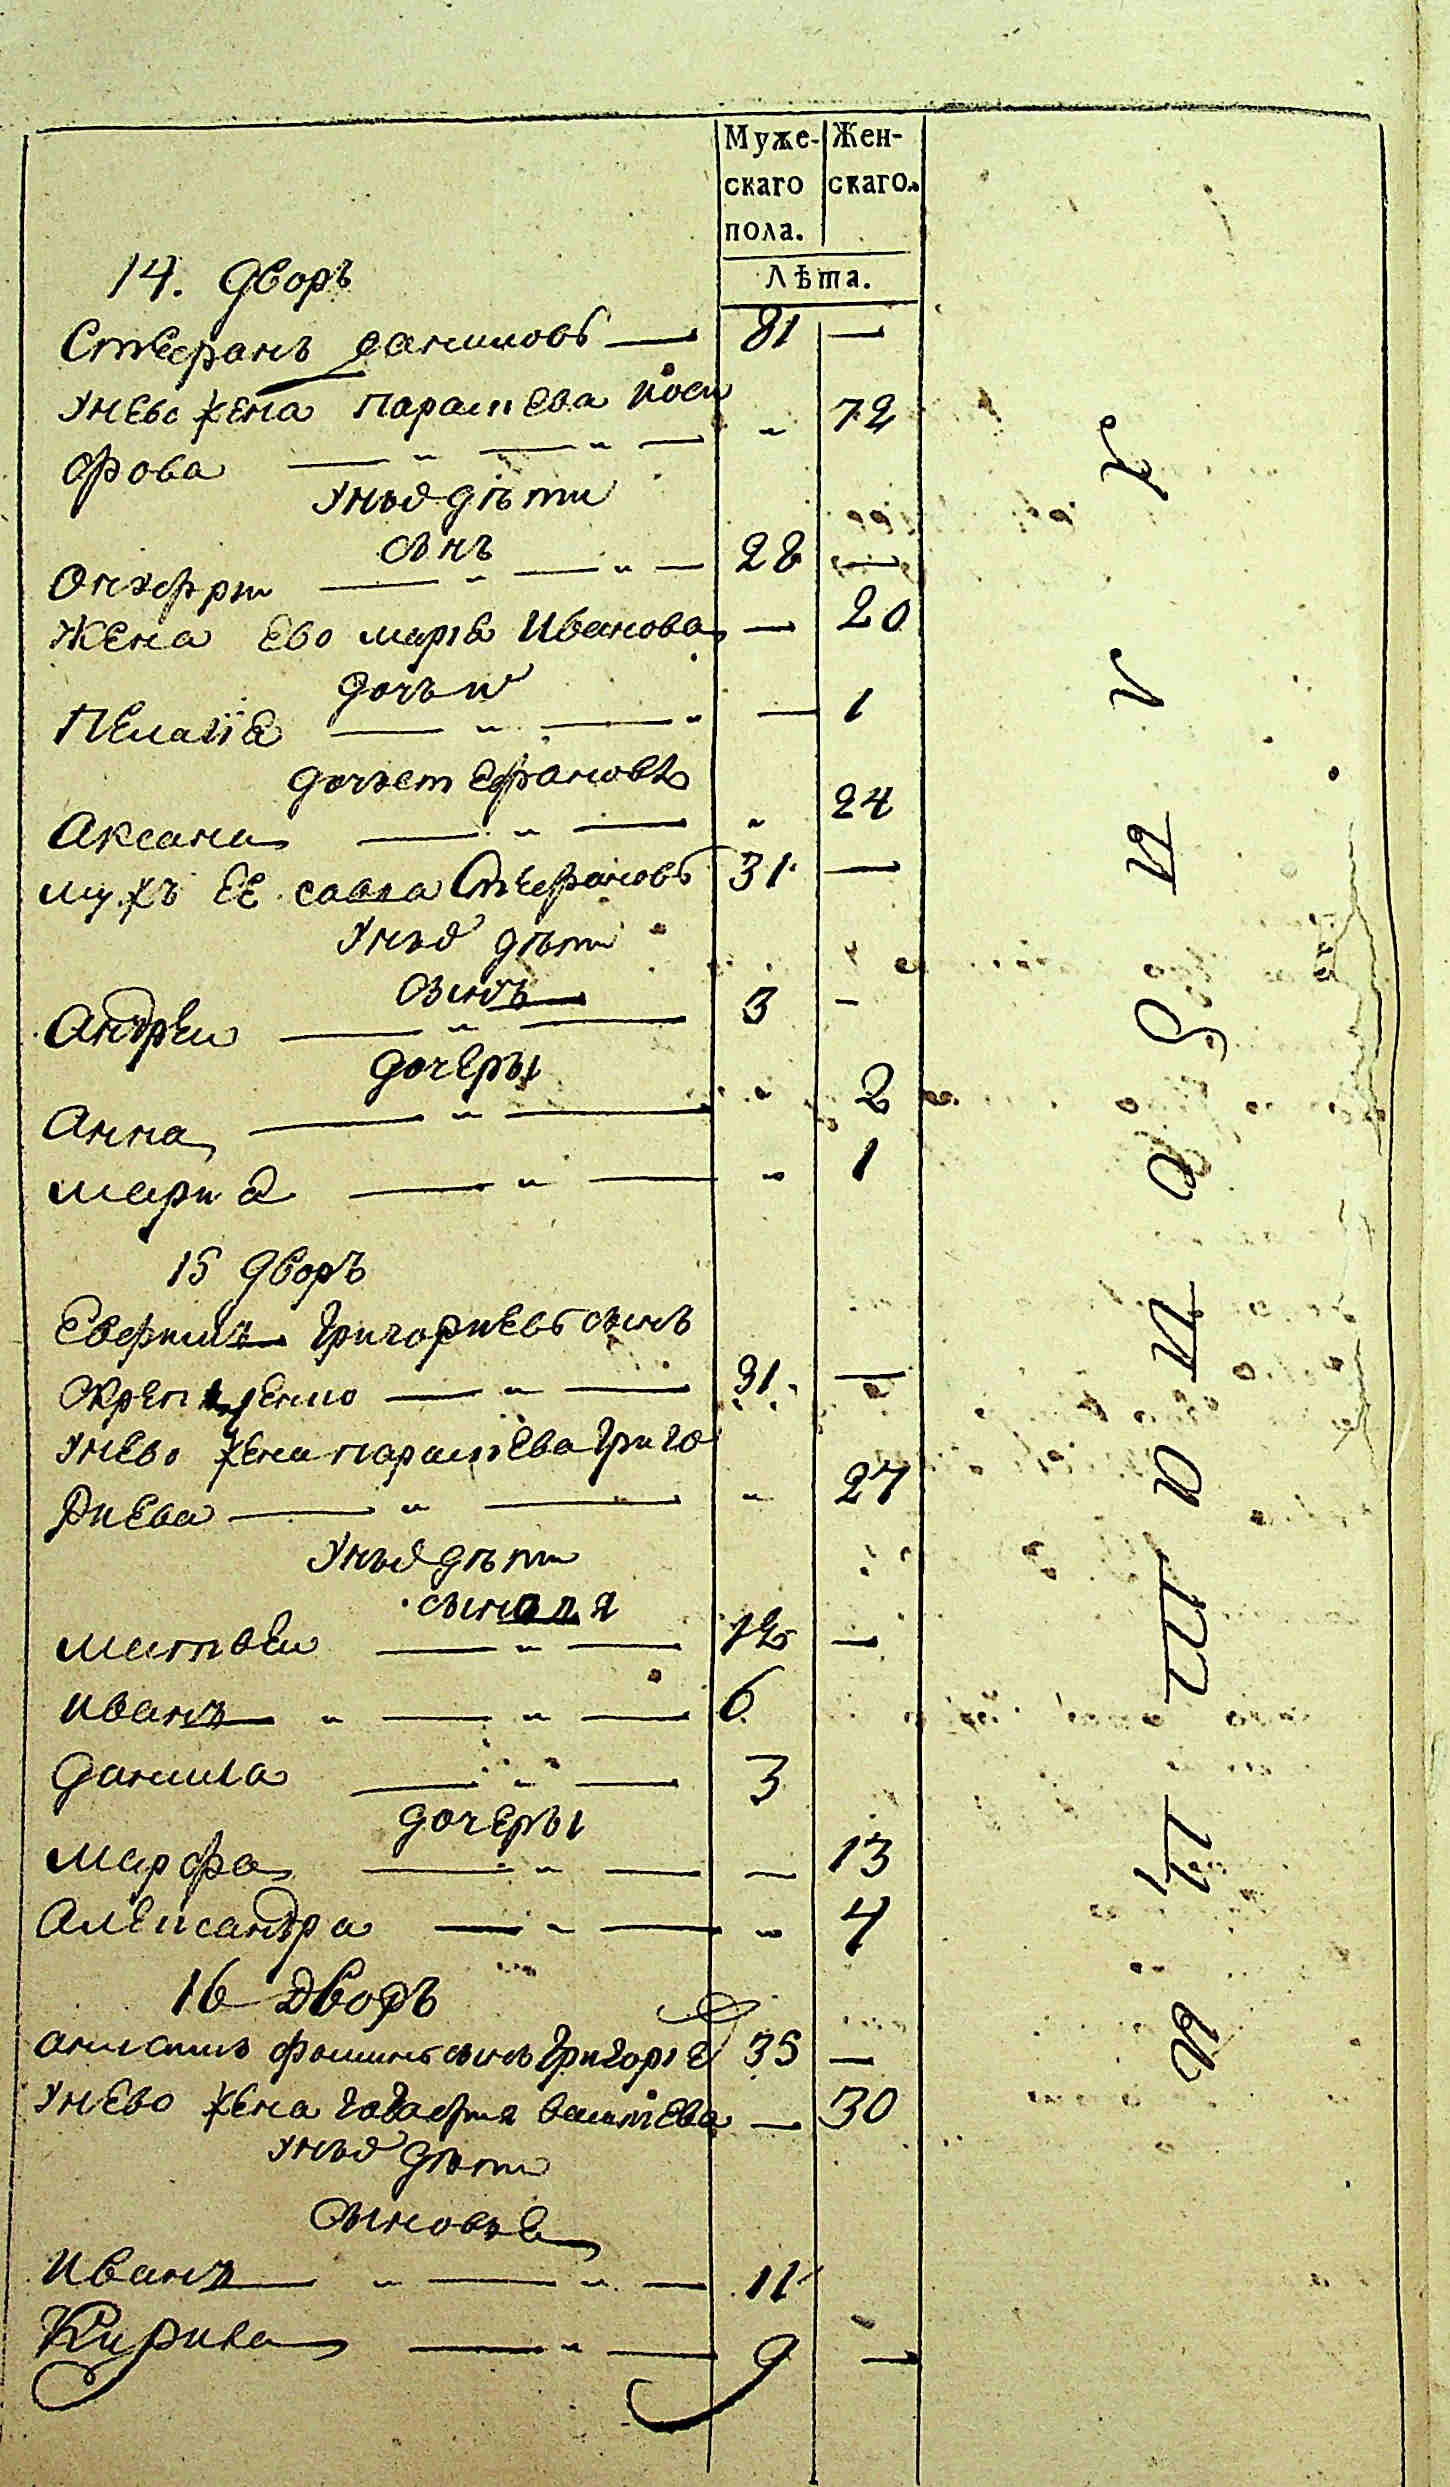 Муже-
скаго
пола.
Жен-
скаго.
Лѣта.
14. дворъ
Стефанъ даниловъ 81 —
унево жена параскева ники „ 72
форова
унихъ дѣти
сынъ
Онуфри 28 —
жена ево марѳа Иванова — 20
дочь
Пелагiя — 1
дочь стефановъ
Аксана „ 24
мужъ ее савва Стефановъ 31 —
унихъ дѣти
сынъ
Андреи 3 -
дочеры
Анна „ 2
мария „ 1
15 дворъ
Евфимъ григориевъ сынъ
31 —
унево жена параскева григо
риева „ 27
унихъ дѣти
сыновя
матвеи 12 —
иванъ 6
данила 3
дочеры
марфа — 13
Александра „ 4
16 дворъ
фоминъ сынъ 35 —
унево жена — 30
унихъ дѣти
Сыновье
Иванъ 11
Кирила 9 —